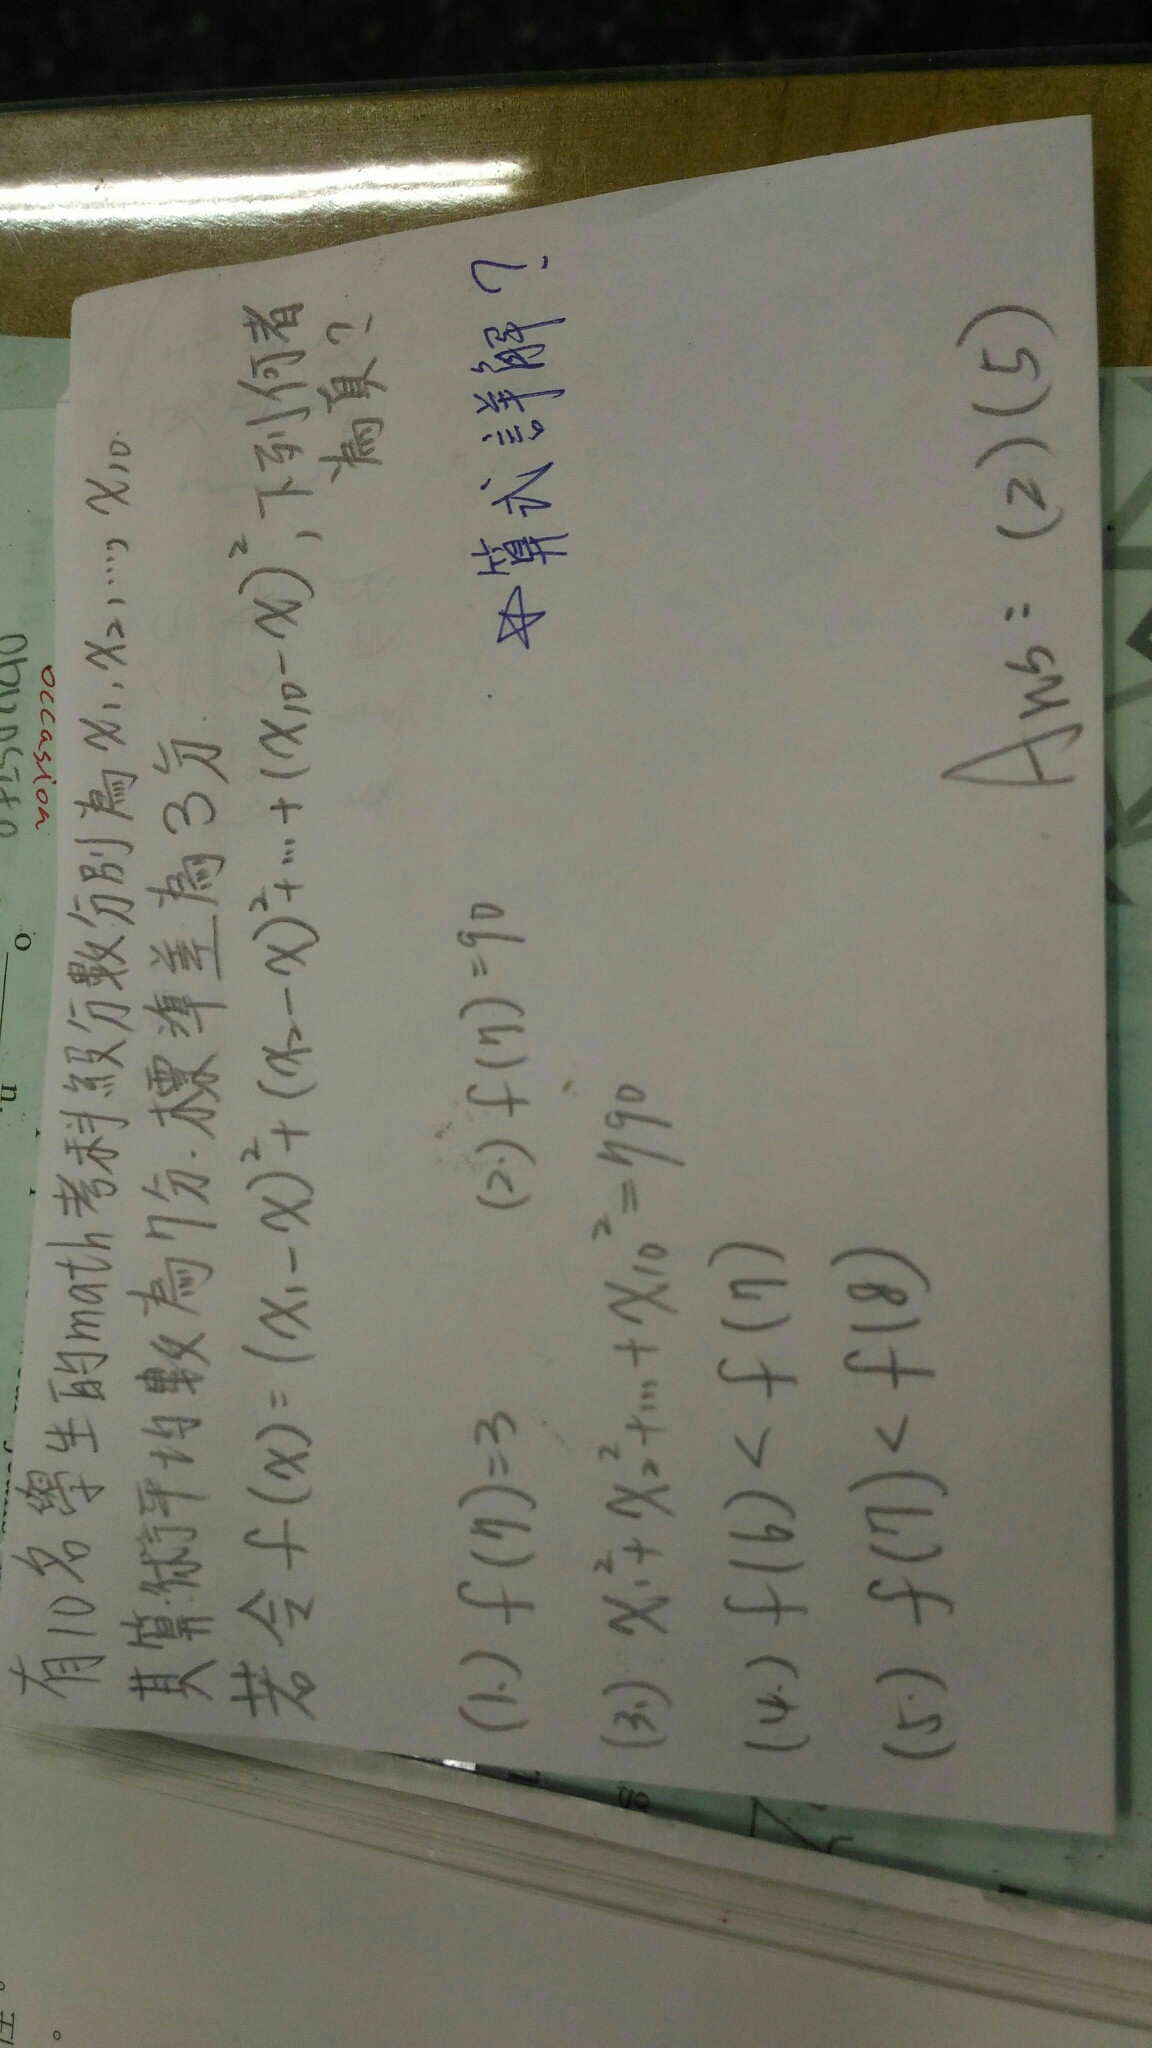 有10名學生的math考科級分數分別為x₁,x₂,...,x₁₀.
其算術平均數為7分.標準差為3分.
若令f(x)=(x₁-x)²+(x₂-x)²+...+(x₁₀-x)²,下列何者
為真?
(1.) f(7)=3 (2.) f(7)=90
☆算式詳解?
(3.) x₁²+x₂²+...+x₁₀²=790
(4.) f(6)<f(7)
(5.) f(7)<f(8)
Ans=(2)(5)
occasion